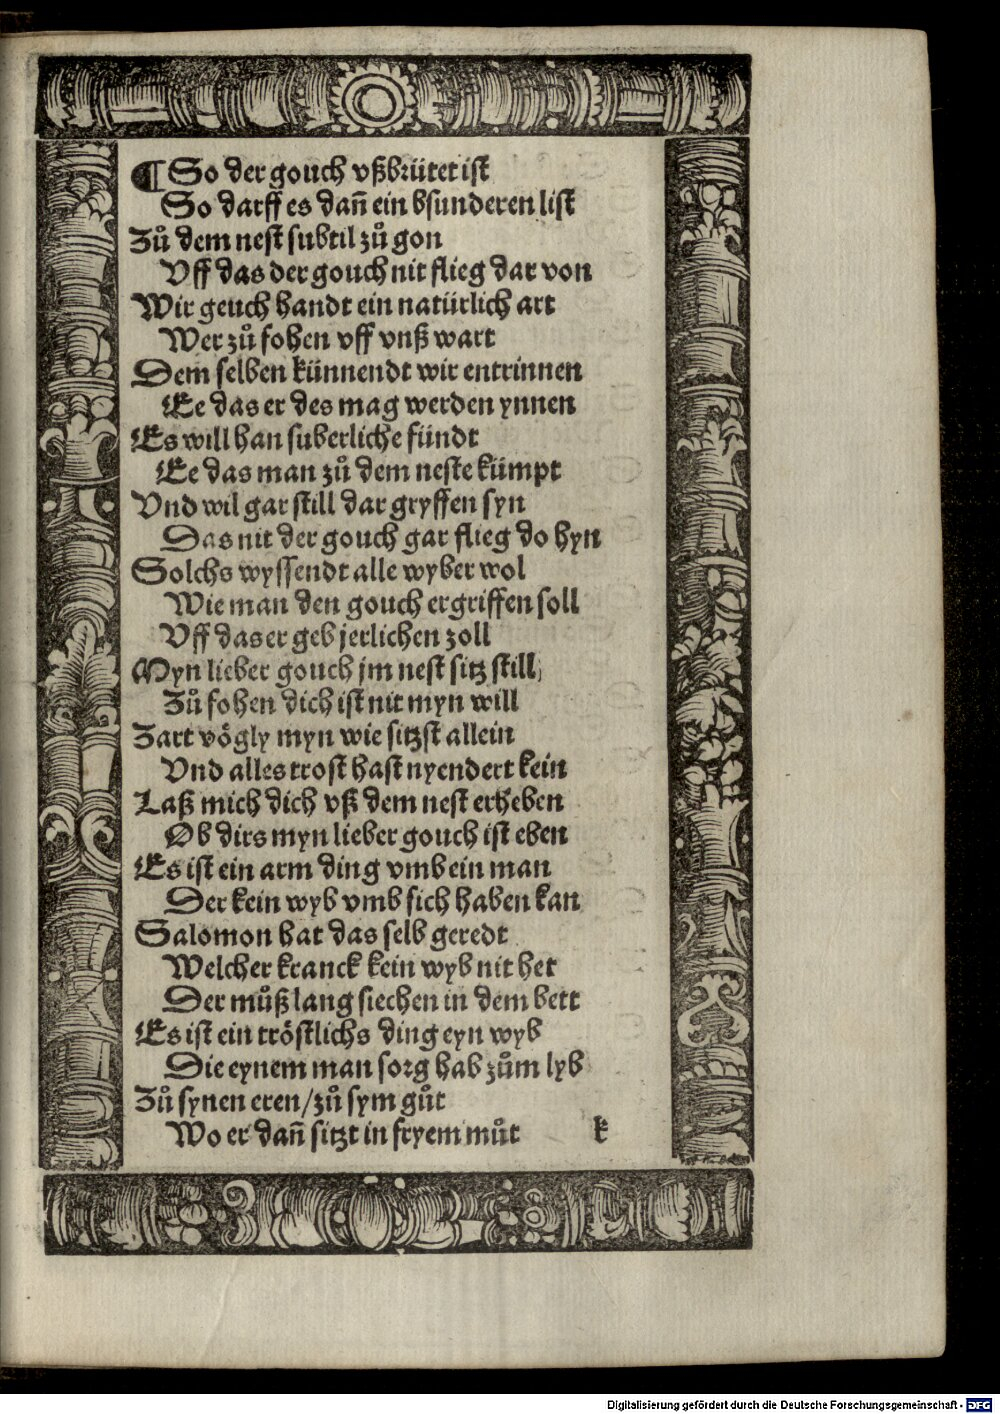 ¶ So der gouch vßbrütet ist
So darff es dañ ein bsunderen list
Zů dem nest subtil zů gon
Vff das der gouch nit flieg dar von
Wir geuch handt ein natürlich art
Wer zů fohen vff vnß wart
Dem selben künnendt wir entrinnen
Ee das er des mag werden ynnen
Es will han suberliche fündt
Ee das man zů dem neste kümpt
Vnd wil gar still dar gryffen syn
Das nit der gouch gar flieg do hyn
Solchs wyssendt alle wyber wol
Wie man den gouch ergriffen soll
Vff das er geb jerlichen zoll
Myn lieber gouch jm nest sitz still
Zů fohen dich ist nit myn will
Zart vögly myn wie sitzst allein
Vnd alles trost hast nyendert kein
Laß mich dich vß dem nest erheben
Ob dirs myn lieber gouch ist eben
Es ist ein arm ding vmb ein man
Der kein wyb vmb sich haben kan
Salomon hat das selb geredt
Welcher kranck kein wyb nit het
Der můß lang siechen in dem bett
Es ist ein tröstlichs ding eyn wyb
Die eynem man sorg hab zům lyb
Zů synen eren/zů sym gůt
Wo er dañ sitzt in fryem můt k
Digitalisierung gefördert durch die Deutsche Forschungsgemeinschaft - DFG